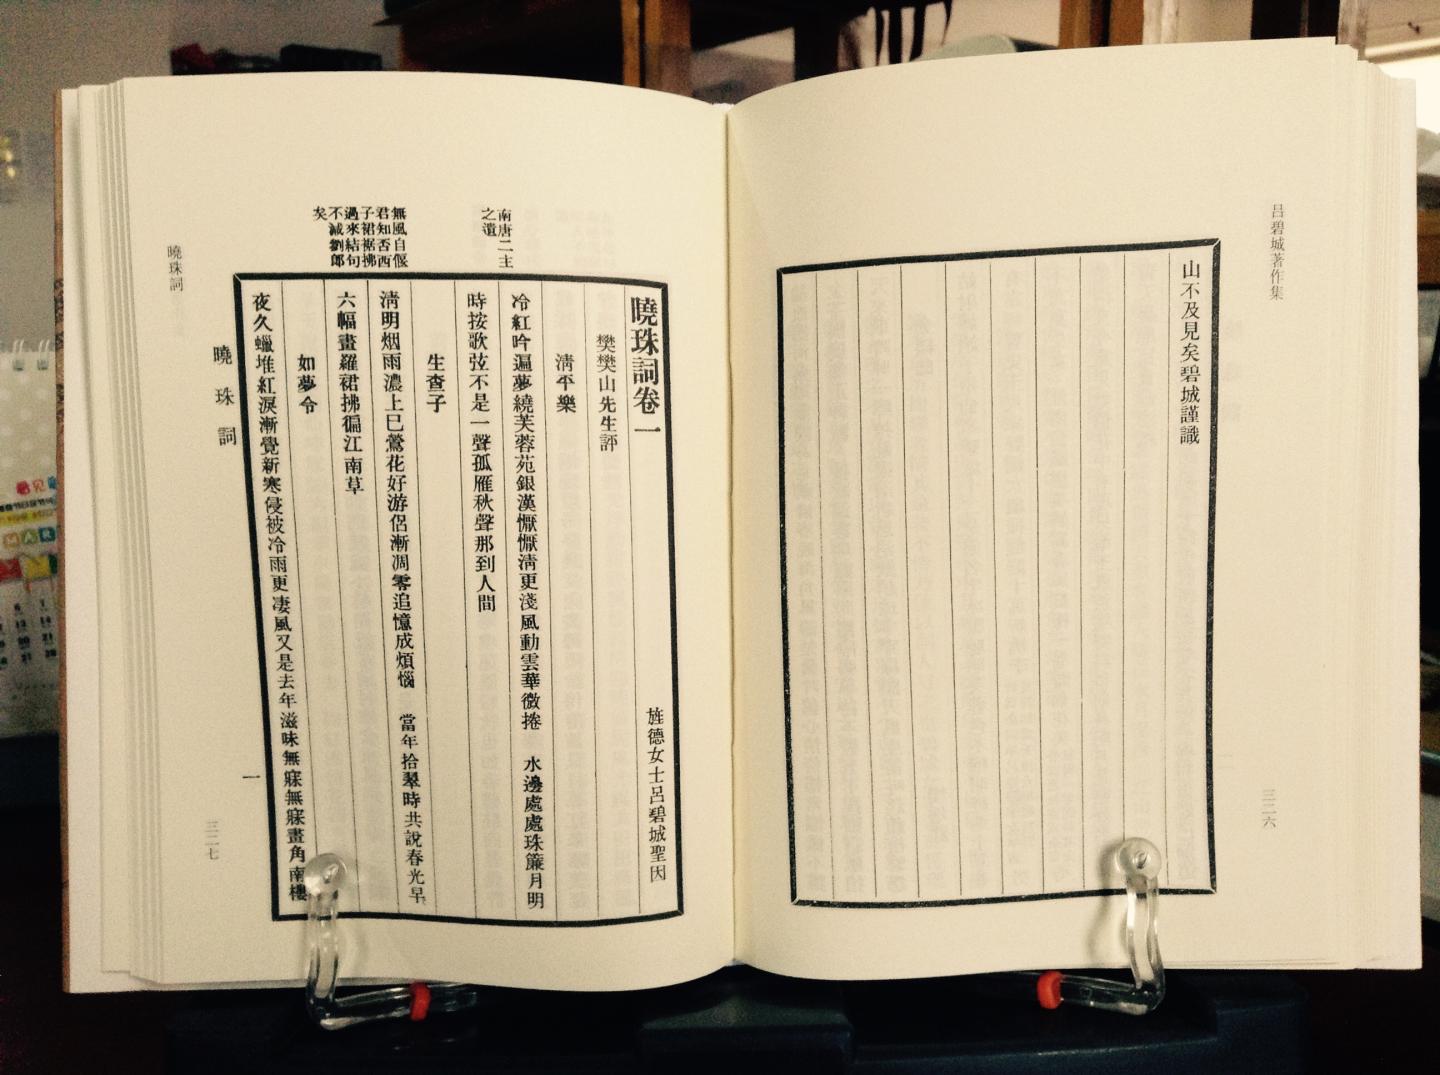 呂碧城著作集
三二六
山不及見矣碧城謹識
曉珠詞卷一
旌德女士呂碧城聖因
樊樊山先生評
清平樂
冷紅吟遍夢繞芙蓉苑銀漢懨懨清更淺風動雲華微捲 水邊處處珠簾月明
時按歌弦不是一聲孤雁秋聲那到人間
生查子
清明烟雨濃上巳鶯花好游侶漸凋零追憶成煩惱 當年拾翠時共說春光早
六幅畫羅裙拂徧江南草
如夢令
夜久蠟堆紅淚漸覺新寒侵被冷雨更凄風又是去年滋味無寐無寐畫角南樓
南唐二主
之遺
無風自偃
君知否西
子裙裾拂
過來結句
不減劉郎
矣
曉珠詞
一
曉珠詞
三二七